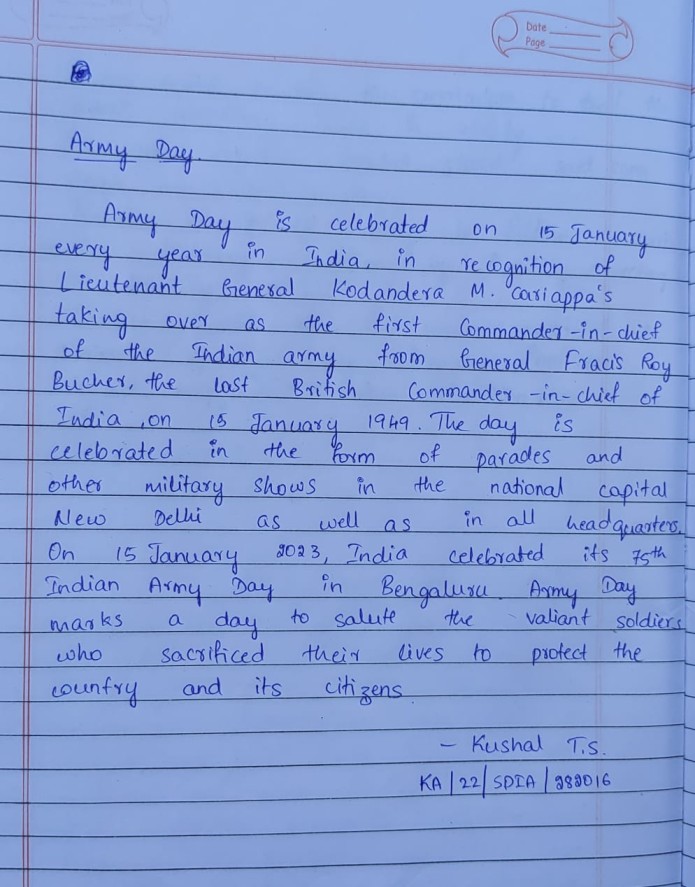 Date
Page
Army Day.
Army Day is celebrated on 15 January
every year in India, in recognition of
Lieutenant General Kodandera M. Cariappa's
taking over as the first Commander-in-chief
of the Indian army from General Fracis Roy
Bucher, the last British Commander-in-chief of
India, on 15 January 1949. The day is
celebrated in the form of parades and
other military shows in the national capital
New Delhi as well as in all headquarters.
On 15 January 2023, India celebrated its 75th
Indian Army Day in Bengaluru. Army Day
marks a day to salute the valiant soldiers
who sacrificed their lives to protect the
country and its citizens
- Kushal T.S.
KA/22/SDIA/282016